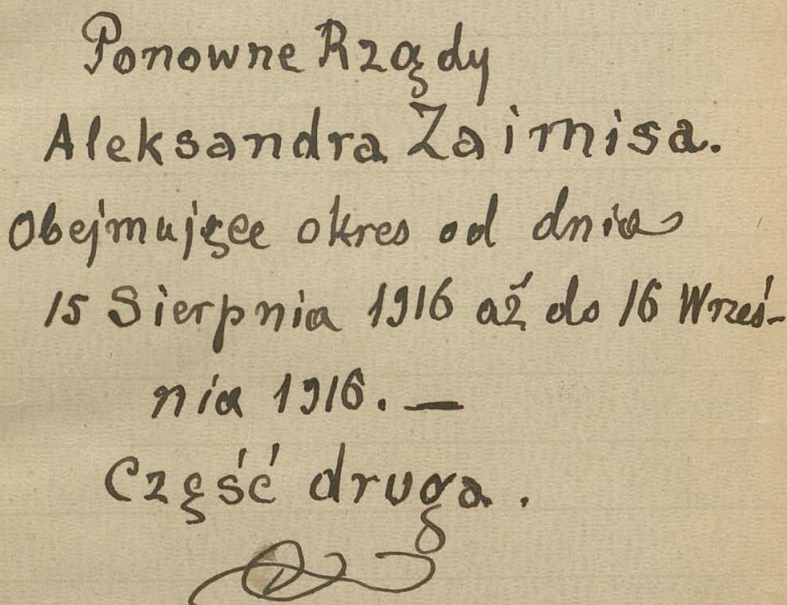 Ponowne Rządy
Aleksandra Zaimisa.
Obejmujące okres od dnia
15 Sierpnia 1916 aż do 16 Wrześ-
nia 1916. —
Część druga.